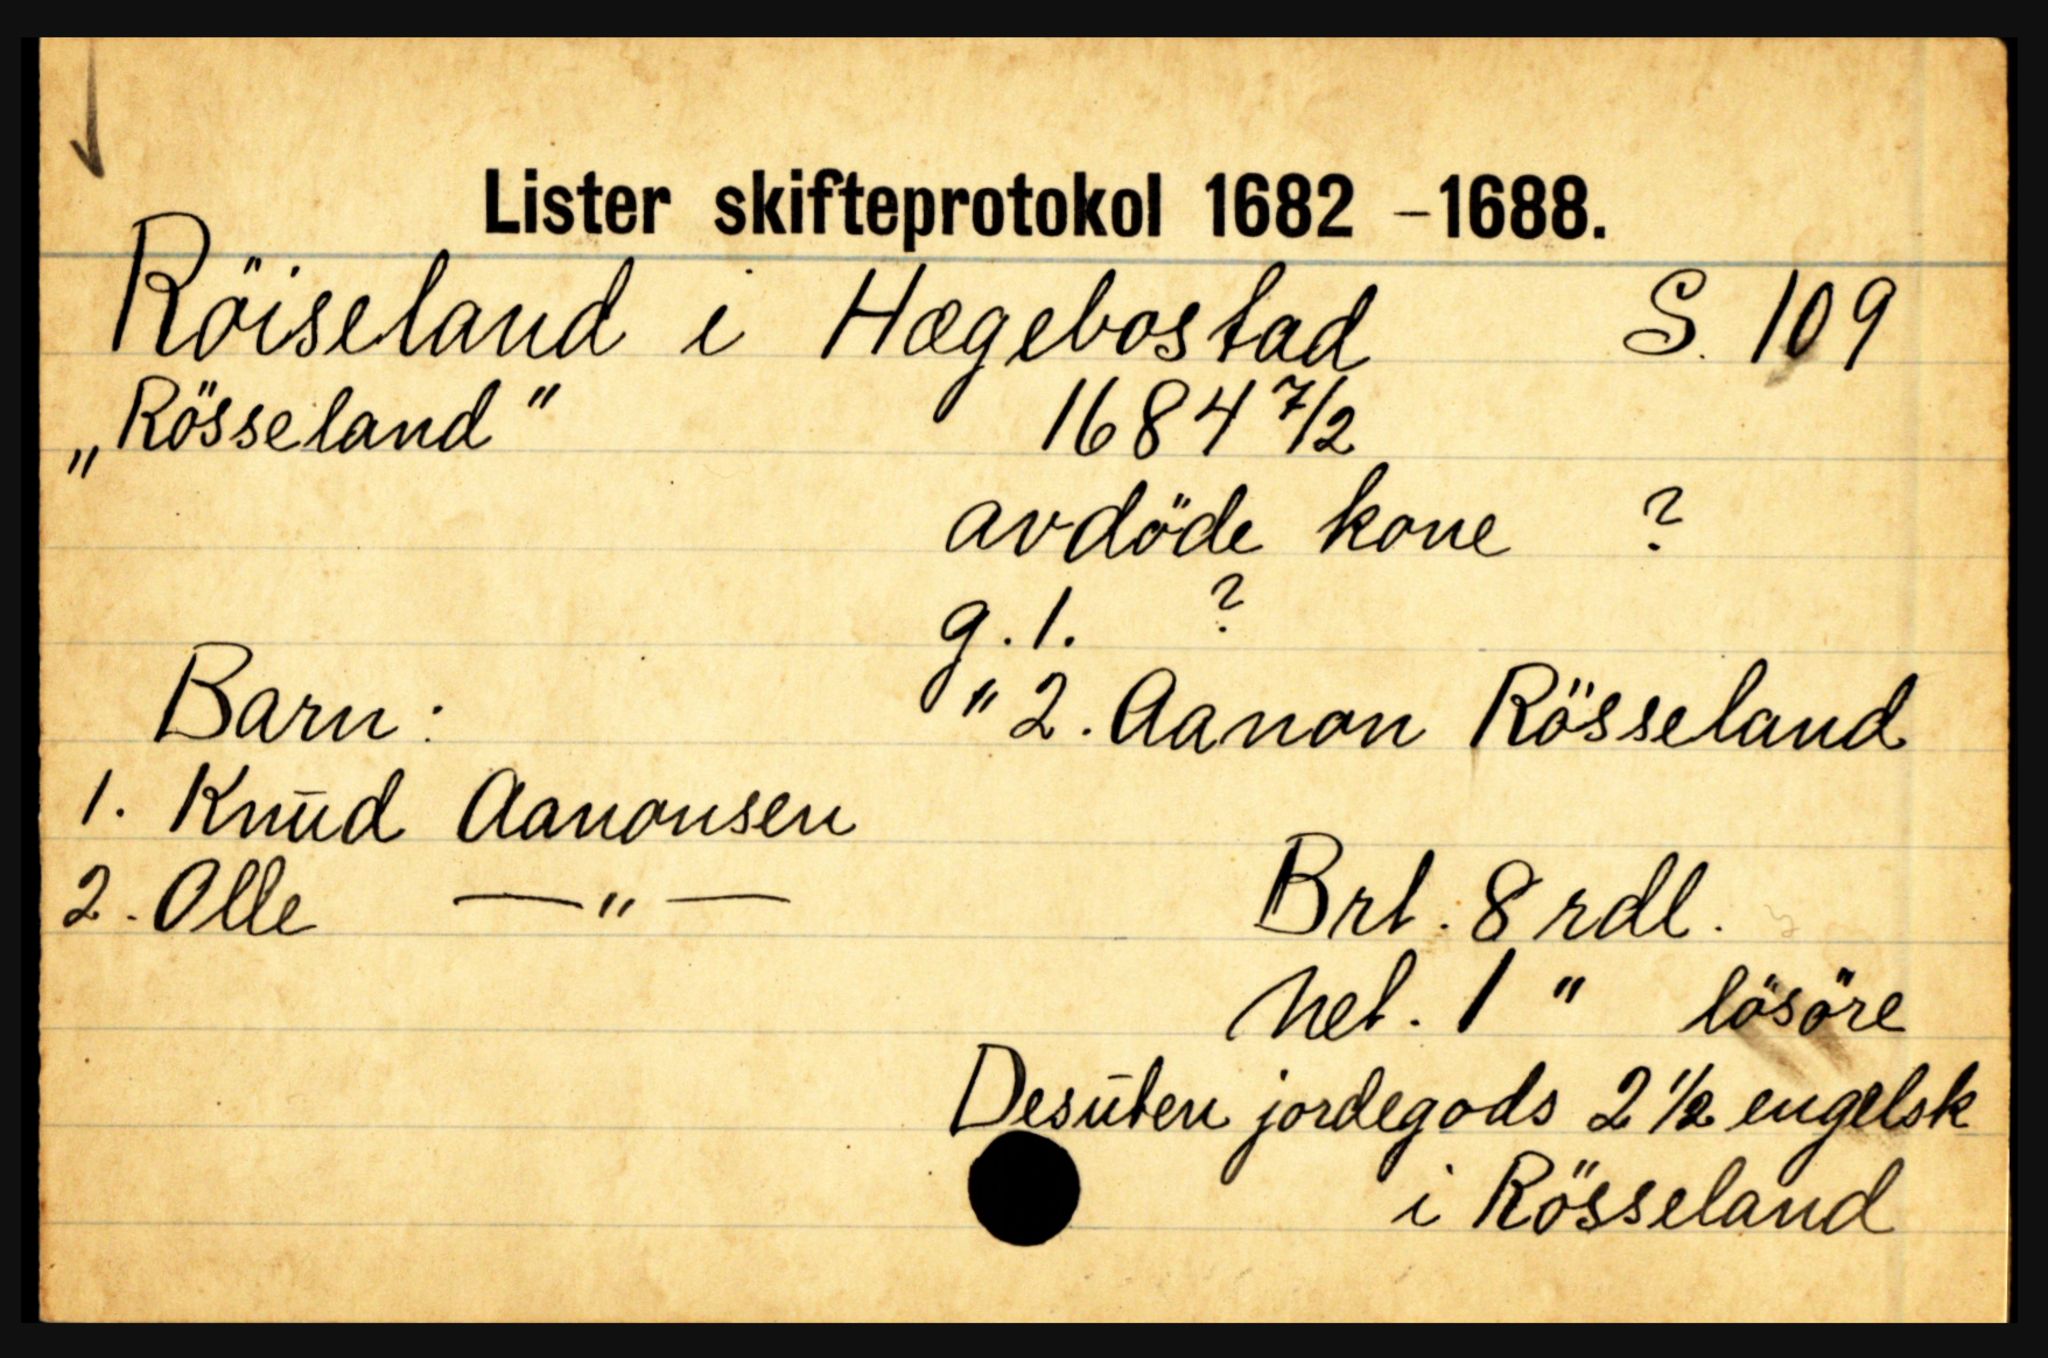 Lister skifteprotokol 1682 - 1688.
Röiseland i Hægebostad S. 109
„Rösseland" 1684 7/2
avdöde kone ?
g. 1. ?
Barn: " 2. Aanon Rösseland
1. Knūd Aanonsen
2. Olle —"— Brt. 8 rdl.
Net. 1 " lösöre
Desūten jordegods 2 1/2 engelsk
i Rösseland